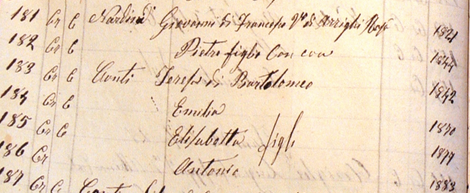 181 Cr C Nardini Giovanni di Francesco Vo di Arrighi Rosa 1821
182 Cr C Pietro figlio con cea 1844
183 Cr C Conti Teresa di Bartolomeo 1842
184 Cr C Emilia 1870
185 Cr C Elisabetta figli 1877
186 Cr Antonio
187 Cr C